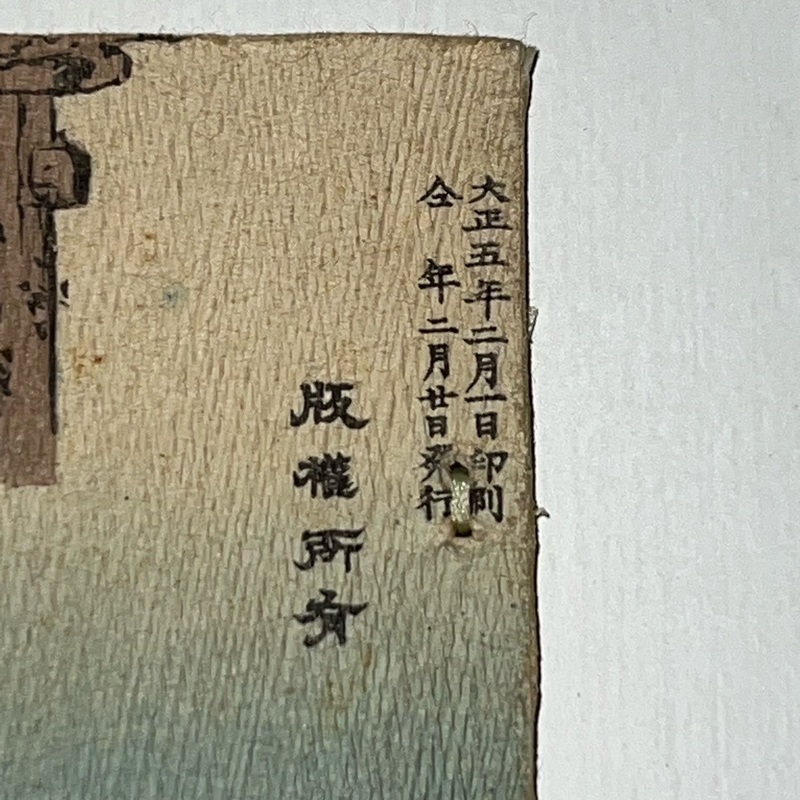 大正五年二月一日印刷
仝　年二月廿日発行
版權所有